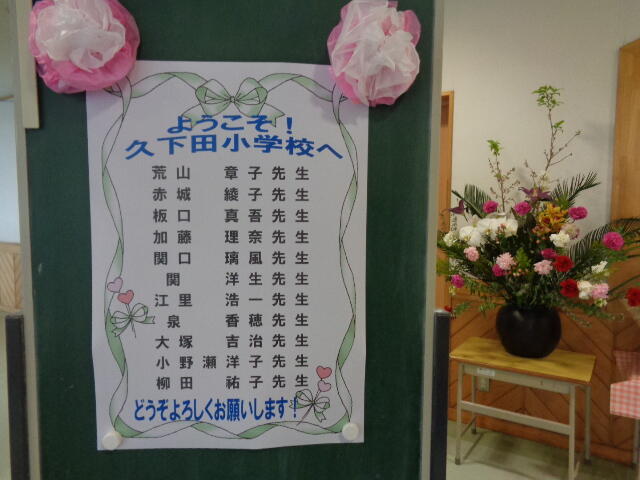 ようこそ！
久下田小学校へ
荒山 章子先生
赤城 綾子先生
板口 真吾先生
加藤 理奈先生
関口 璃風先生
関 洋生先生
江里 浩一先生
泉 香穂先生
大塚 吉治先生
小野瀬洋子先生
柳田 祐子先生
どうぞよろしくお願いします！